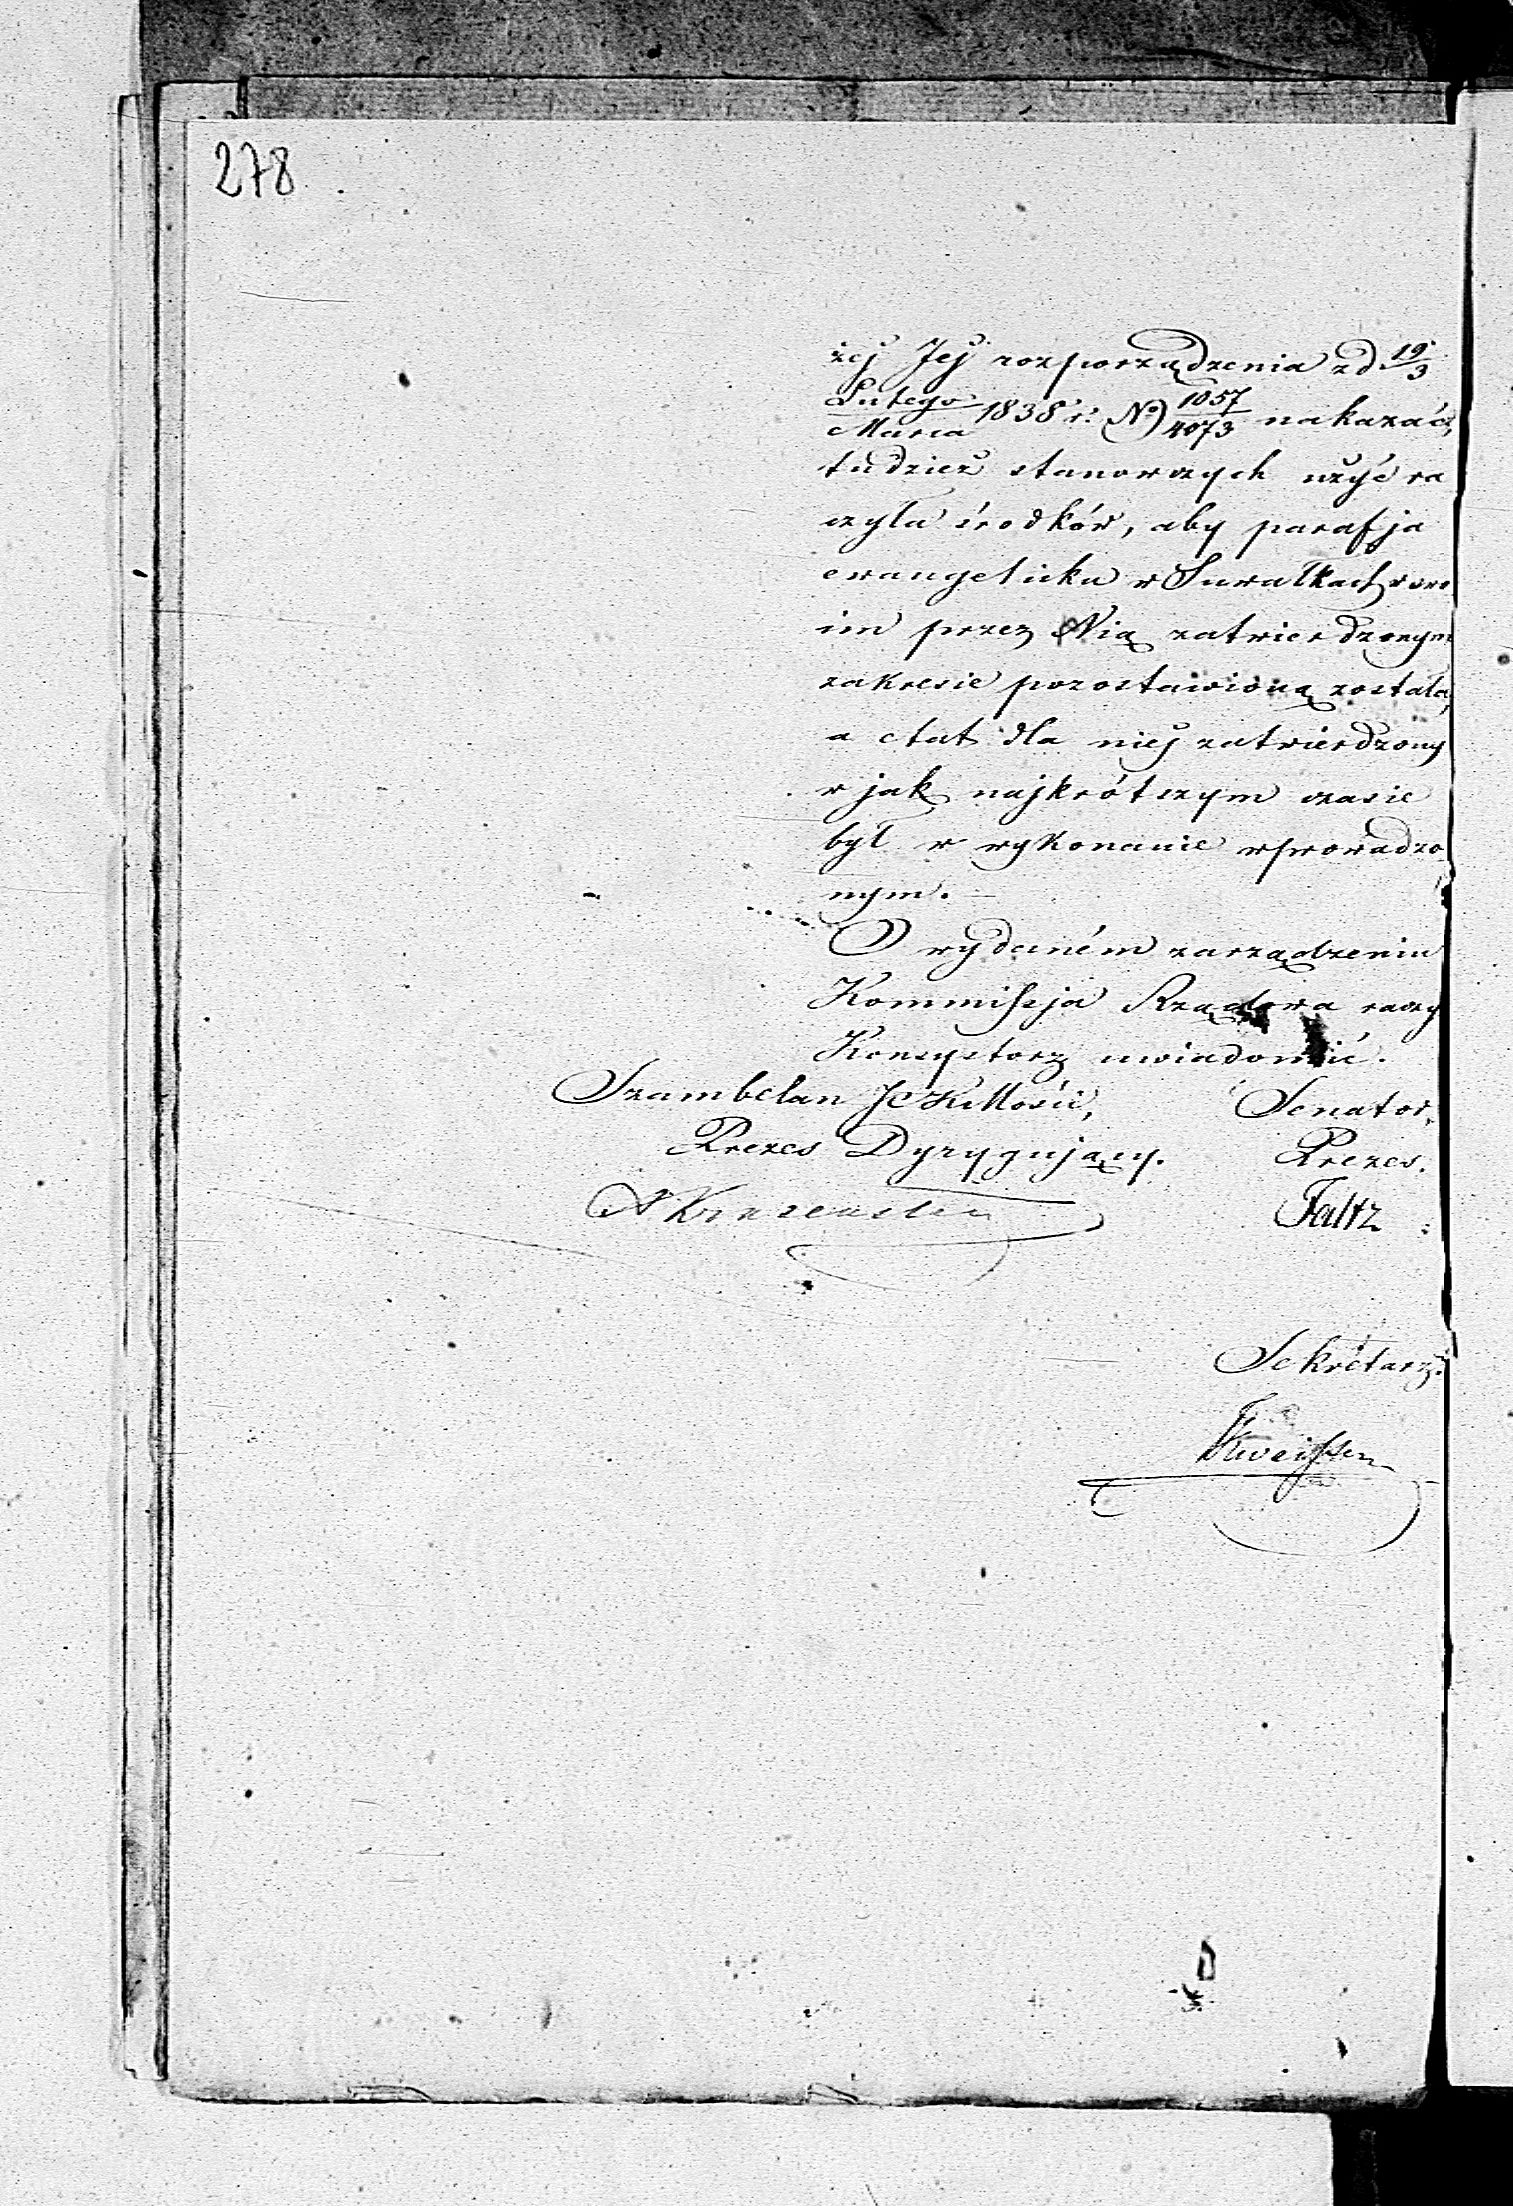 278
żej Jej rozporządzenia z d. 19/3
Lutego/Marca 1838 r. No 1057/4073 nakazać,
tudzież stanowczych użyć ra
czyła środków, aby parafja
ewangelicka w Suwałkach w swo
im przez Nią zatwierdzonym
zakresie pozostawioną została,
a etat dla niej zatwierdzony
w jak najkrótszym czasie
był w wykonanie wprowadzo
nym. —
O wydaném zarządzeniu
Kommissja Rządowa raczy
Konsystorz uwiadomić.
Szambelan J C K Mości, Senator,
Prezes Dyrygujący. Prezes.
Faltz
Sekretarz.